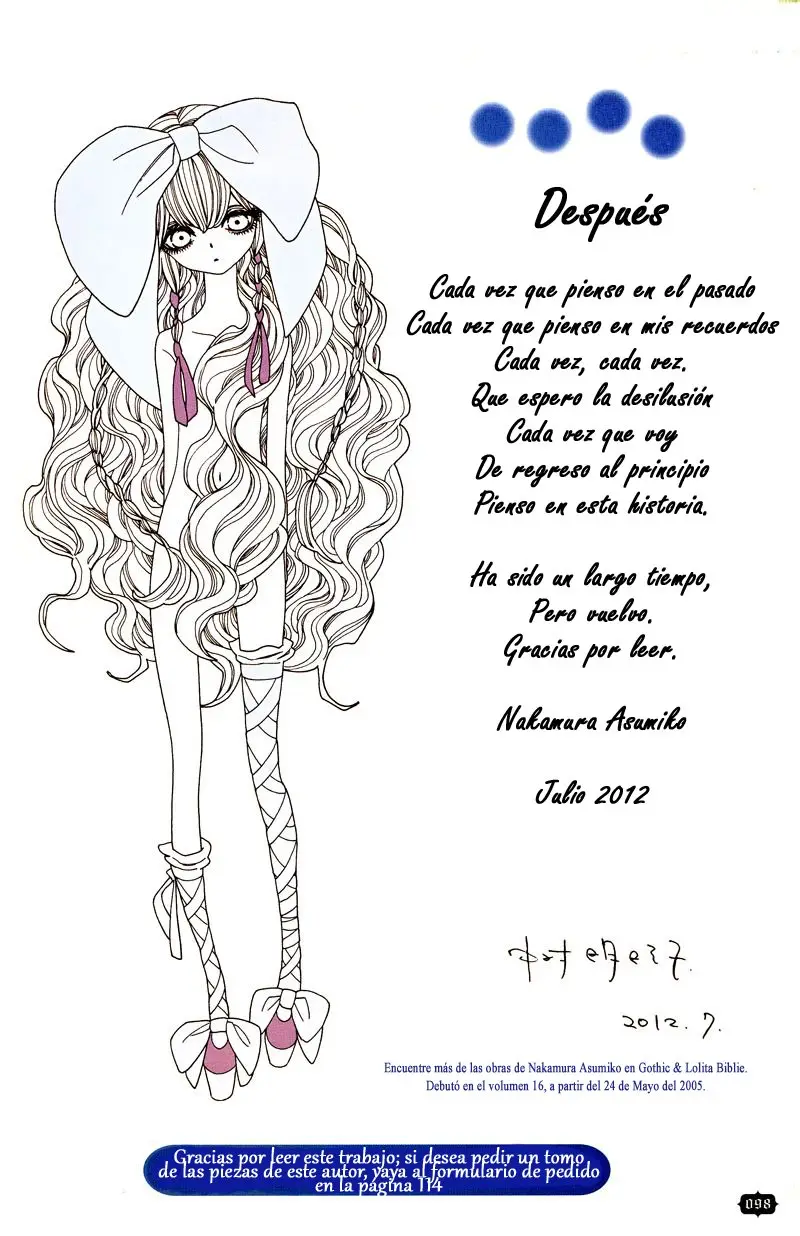 Después
Cada vez que pienso en el pasado
Cada vez que pienso en mis recuerdos
Cada vez, cada vez.
Que espero la desilusión
Cada vez que voy
De regreso al principio
Pienso en esta historia.
Ha sido un largo tiempo,
Pero vuelvo.
Gracias por leer.
Nakamura Asumiko
Julio 2012
中村明日美子.
2012. 7.
Encuentre más de las obras de Nakamura Asumiko en Gothic & Lolita Biblie.
Debutó en el volumen 16, a partir del 24 de Mayo del 2005.
Gracias por leer este trabajo; si desea pedir un tomo
de las piezas de este autor, vaya al formulario de pedido
en la página 114
098